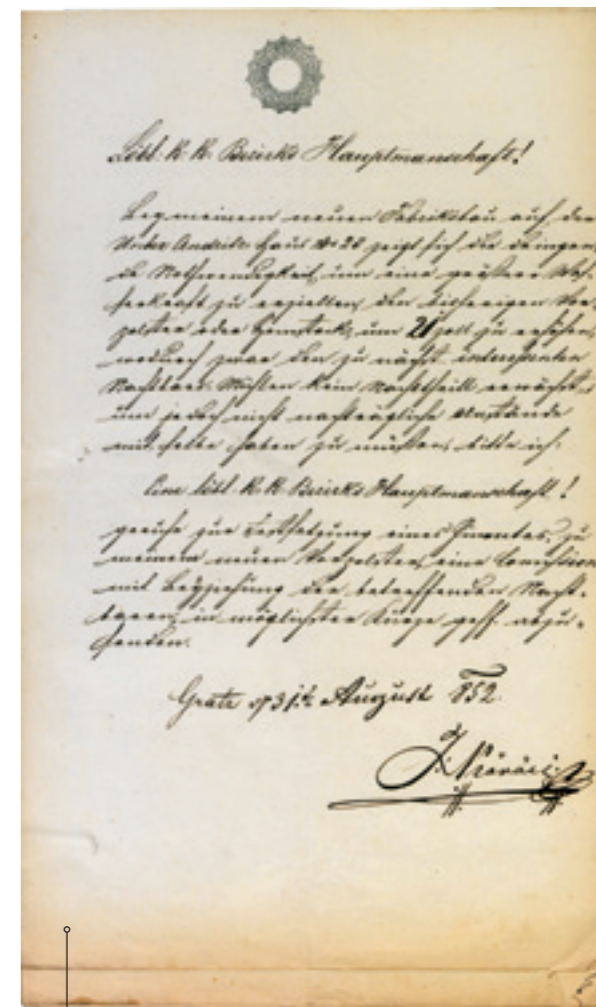 Löbl. K. K. Bezirks Hauptmanschaft!
Bey meinem neuen Fabriksbau auf der
Unter Andritz Haus No 20 zeigt sich die dringen-
de Nothwendigkeit, um eine größere Was-
serkraft zu erziellen, den bisherigen
oder um 21 Zoll zu erhöhen,
wodurch zwar den zu nächst interessirten
Nachbars Mühlen kein Nachtheill erwächst,
um jedoch nicht nachträgliche Anstände
mit selbe haben zu müssen, bitte ich:
Eine löbl. K. K. Bezirks Hauptmanschaft!
geruhe zur Festsetzung eines zu
meinem neuen eine Comission
mit Beyziehung der betreffenden Nach-
baren, in möglichster Kürze gefl. abzu-
senden.
Gratz 31t August 852.
J. Körösi